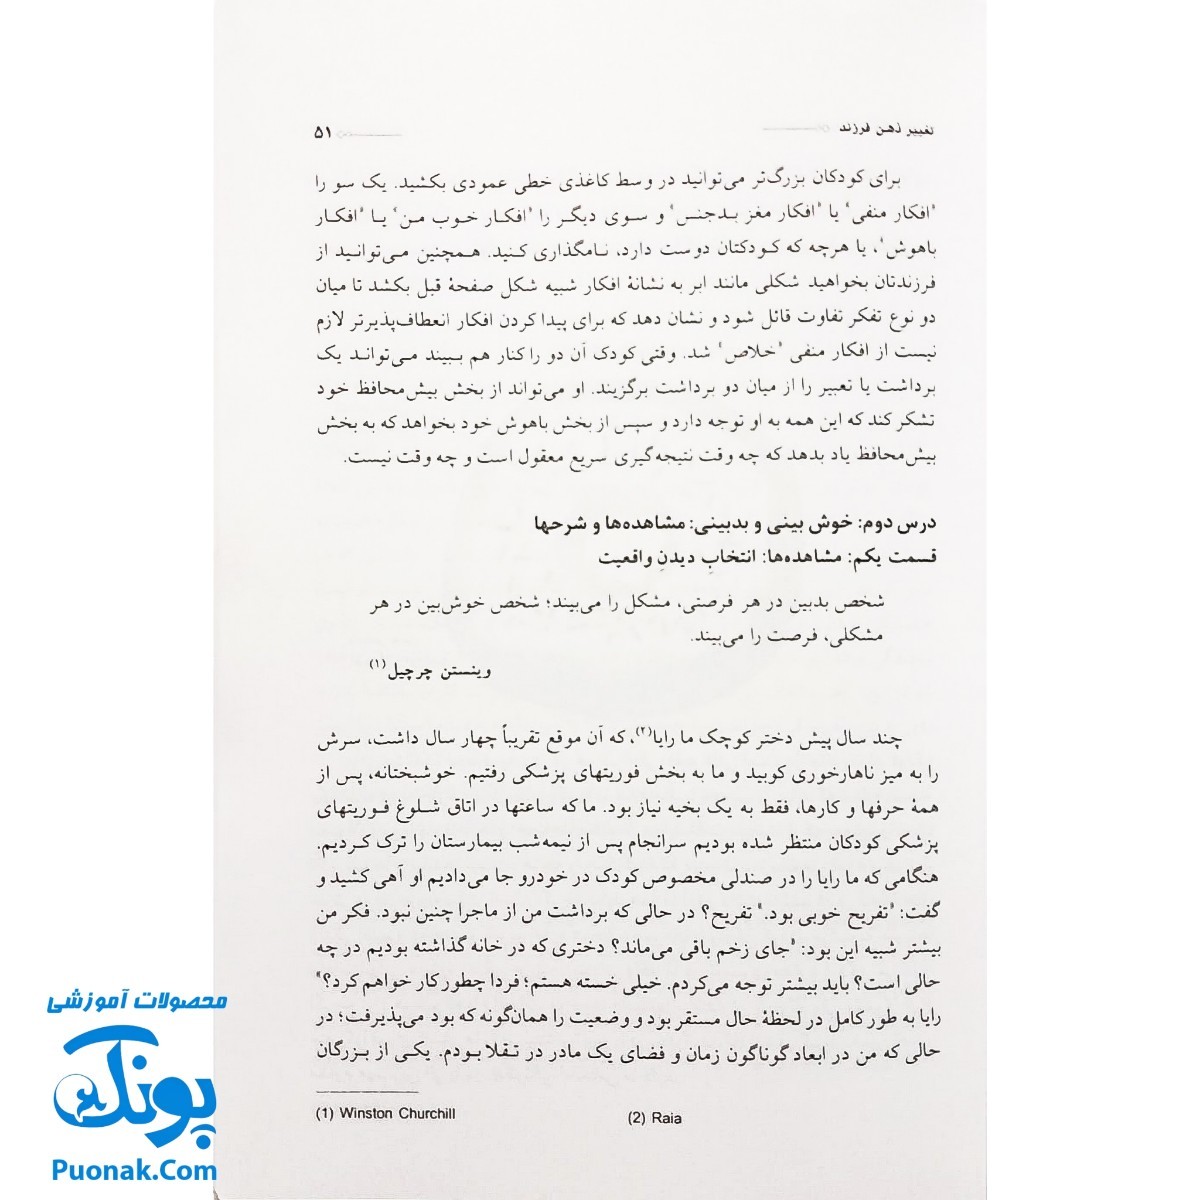 تغییر ذهن فرزند
۵۱
برای کودکان بزرگ‌تر می‌توانید در وسط کاغذی خطی عمودی بکشید. یک سو را
"افکار منفی" یا "افکار مغز بدجنس" و سوی دیگر را "افکار خوب من" یا "افکار
باهوش"، یا هرچه که کودکتان دوست دارد، نامگذاری کنید. همچنین می‌توانید از
فرزندتان بخواهید شکلی مانند ابر به نشانهٔ افکار شبیه شکل صفحهٔ قبل بکشد تا میان
دو نوع تفکر تفاوت قائل شود و نشان دهد که برای پیدا کردن افکار انعطاف‌پذیرتر لازم
نیست از افکار منفی "خلاص" شد. وقتی کودک آن دو را کنار هم ببیند می‌تواند یک
برداشت یا تعبیر را از میان دو برداشت برگزیند. او می‌تواند از بخش بیش‌محافظ خود
تشکر کند که این همه به او توجه دارد و سپس از بخش باهوش خود بخواهد که به بخش
بیش‌محافظ یاد بدهد که چه وقت نتیجه‌گیری سریع معقول است و چه وقت نیست.
درس دوم: خوش بینی و بدبینی: مشاهده‌ها و شرحها
قسمت یکم: مشاهده‌ها: انتخابِ دیدنِ واقعیت
شخص بدبین در هر فرصتی، مشکل را می‌بیند؛ شخص خوش‌بین در هر
مشکلی، فرصت را می‌بیند.
وینستن چرچیل(۱)
چند سال پیش دختر کوچک ما رایا(۲)، که آن موقع تقریباً چهار سال داشت، سرش
را به میز ناهارخوری کوبید و ما به بخش فوریتهای پزشکی رفتیم. خوشبختانه، پس از
همهٔ حرفها و کارها، فقط به یک بخیه نیاز بود. ما که ساعتها در اتاق شلوغ فوریتهای
پزشکی کودکان منتظر شده بودیم سرانجام پس از نیمه‌شب بیمارستان را ترک کردیم.
هنگامی که ما رایا را در صندلی مخصوص کودک در خودرو جا می‌دادیم او آهی کشید و
گفت: "تفریح خوبی بود." تفریح؟ در حالی که برداشت من از ماجرا چنین نبود. فکر من
بیشتر شبیه این بود: "جای زخم باقی می‌ماند؟ دختری که در خانه گذاشته بودیم در چه
حالی است؟ باید بیشتر توجه می‌کردم. خیلی خسته هستم؛ فردا چطور کار خواهم کرد؟"
رایا به طور کامل در لحظهٔ حال مستقر بود و وضعیت را همان‌گونه که بود می‌پذیرفت؛ در
حالی که من در ابعاد گوناگون زمان و فضای یک مادر در تقلا بودم. یکی از بزرگان
(1) Winston Churchill
(2) Raia
محصولات آموزشی
پونک
Puonak.Com